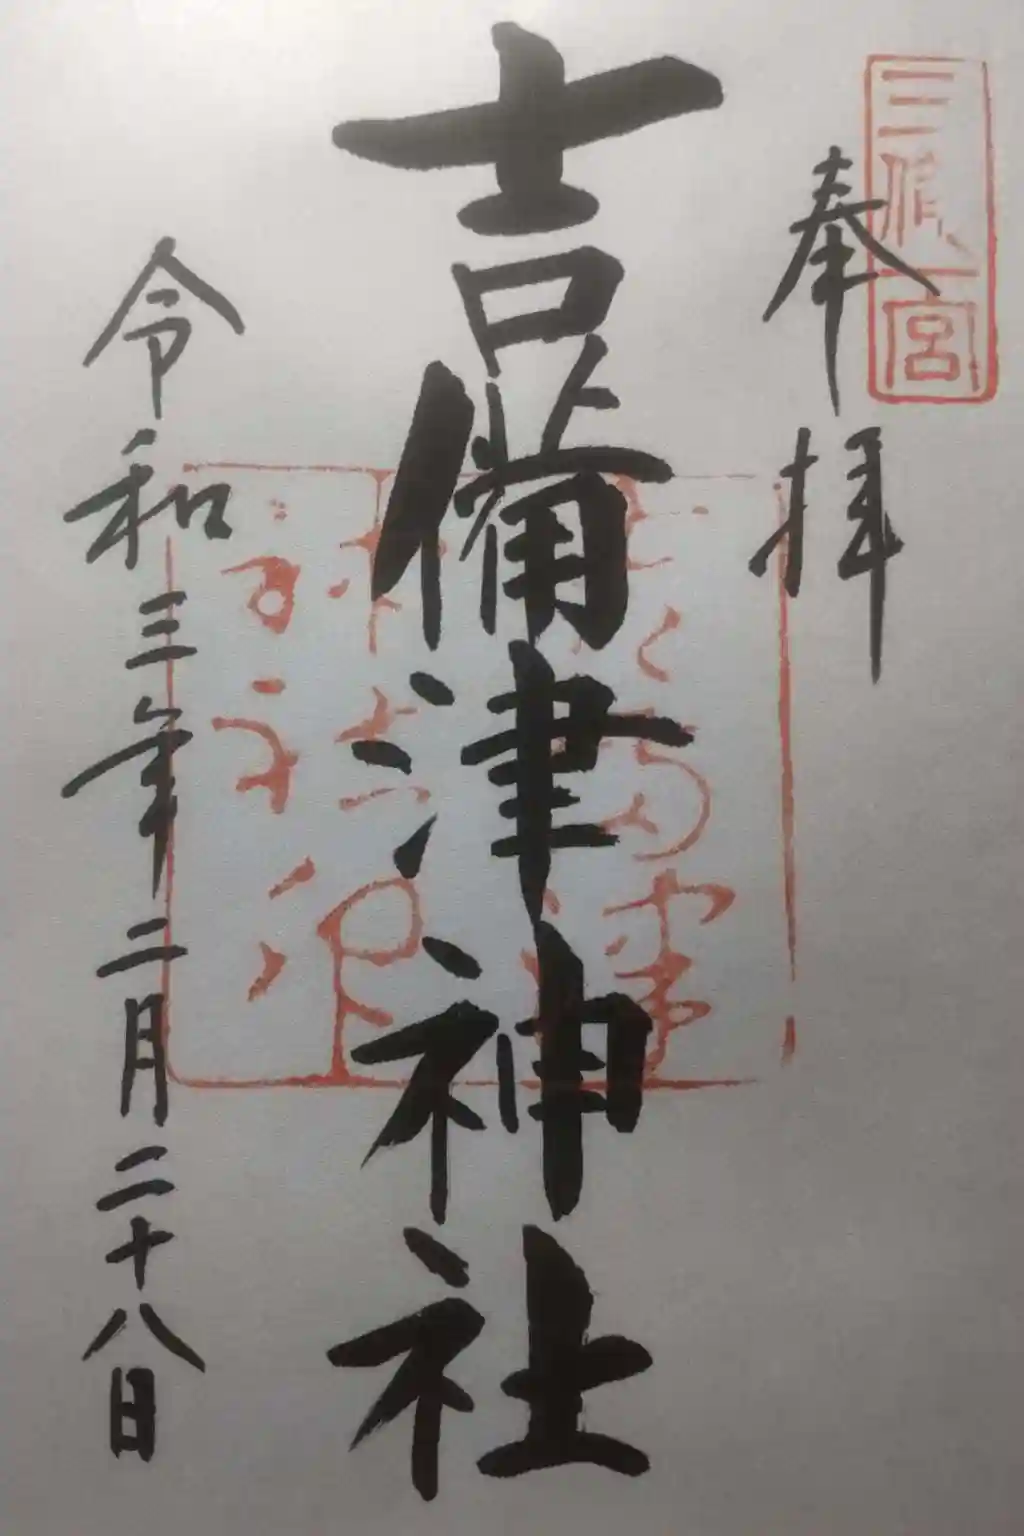 三備一宮
奉拝
吉備津神社
令和三年二月二十八日